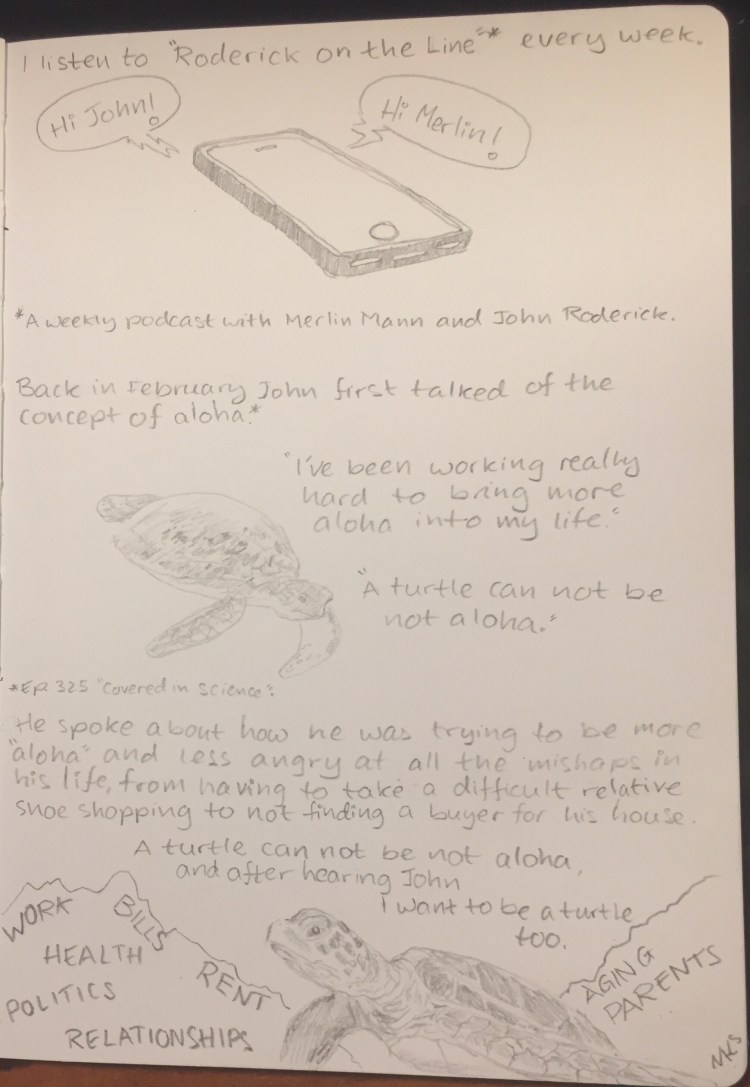 I listen to "Roderick on the Line"* every week.
Hi John!
Hi Merlin!
*A weekly podcast with Merlin Mann and John Roderick.
Back in February John first talked of the
concept of aloha.*
"I've been working really
hard to bring more
aloha into my life."
"A turtle can not be
not aloha."
*EP. 325 "Covered in Science".
He spoke about how he was trying to be more
"aloha" and less angry at all the mishaps in
his life, from having to take a difficult relative
shoe shopping to not finding a buyer for his house.
A turtle can not be not aloha,
and after hearing John
I want to be a turtle
too.
WORK
BILLS
HEALTH
RENT
POLITICS
RELATIONSHIPS
AGING
PARENTS
MKS